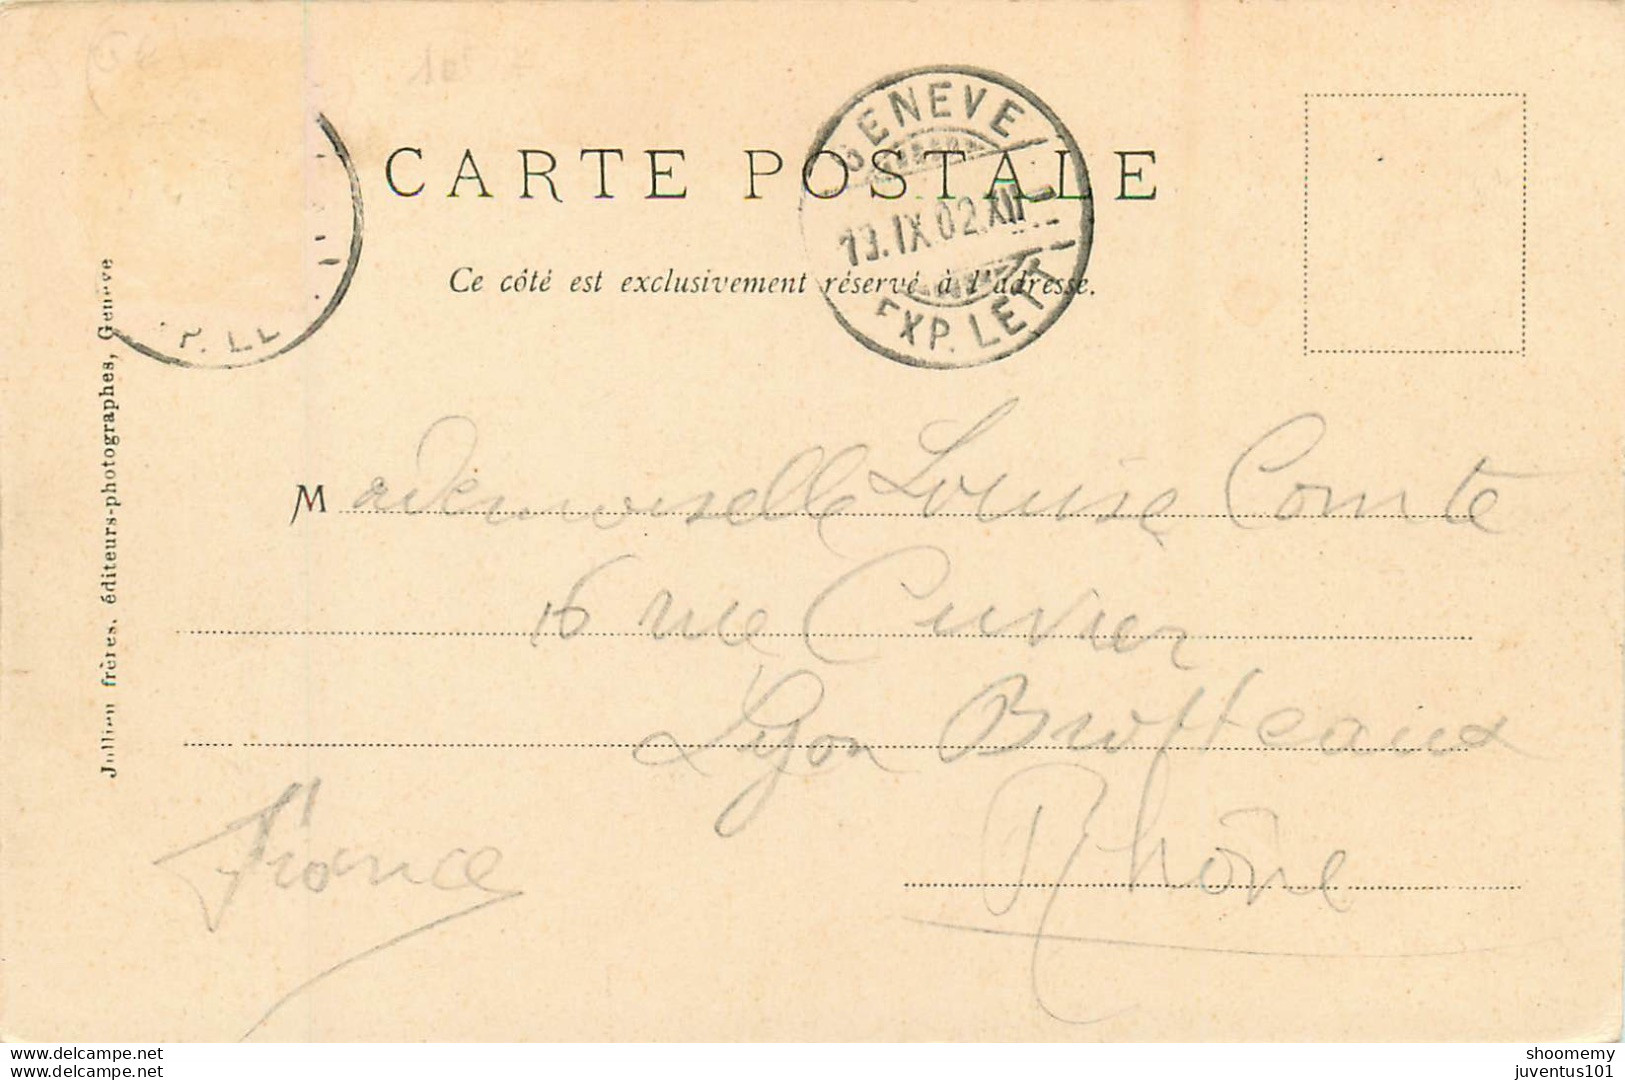 CARTE POSTALE
Ce côté est exclusivement réservé à l'adresse.
GENEVE
13.IX.02.XII
EXP. LETT
P. LE
Mademoiselle Louise Comte
16 rue Cuvier
Lyon Brotteaux
Rhône
France
Jullien frères, éditeurs-photographes, Genève
www.delcampe.net
www.delcampe.net
shoomemy
juventus101